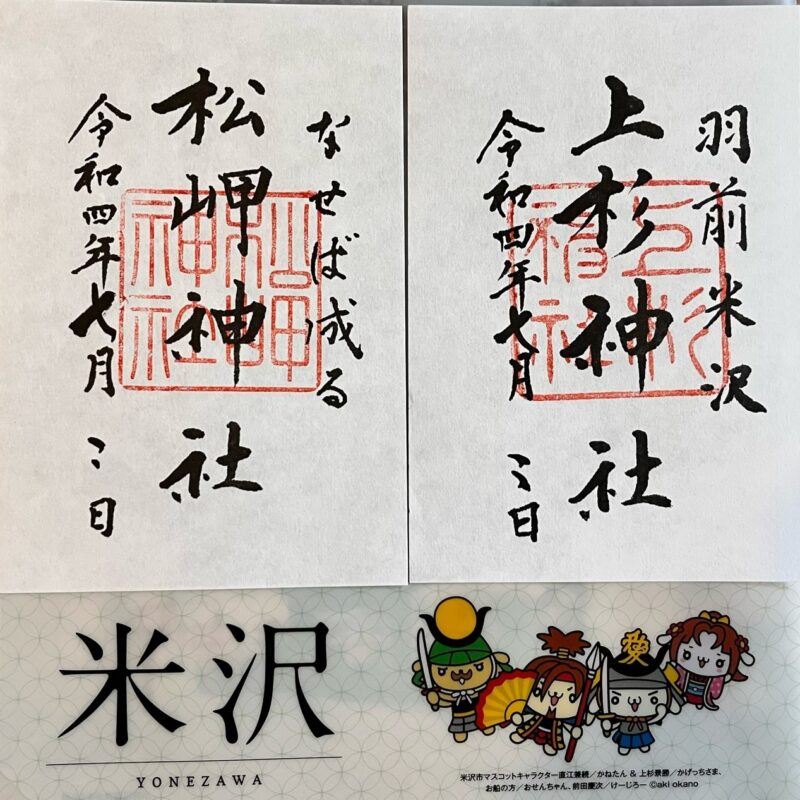 羽前米沢
上杉神社
令和四年七月二日
なせば成る
松岬神社
令和四年七月二日
松岬
神社
米沢
YONEZAWA
愛
米沢市マスコットキャラクター直江兼続／かねたん & 上杉景勝／かげっちさま、
お船の方／おせんちゃん、前田慶次／けーじろー ©aki okano